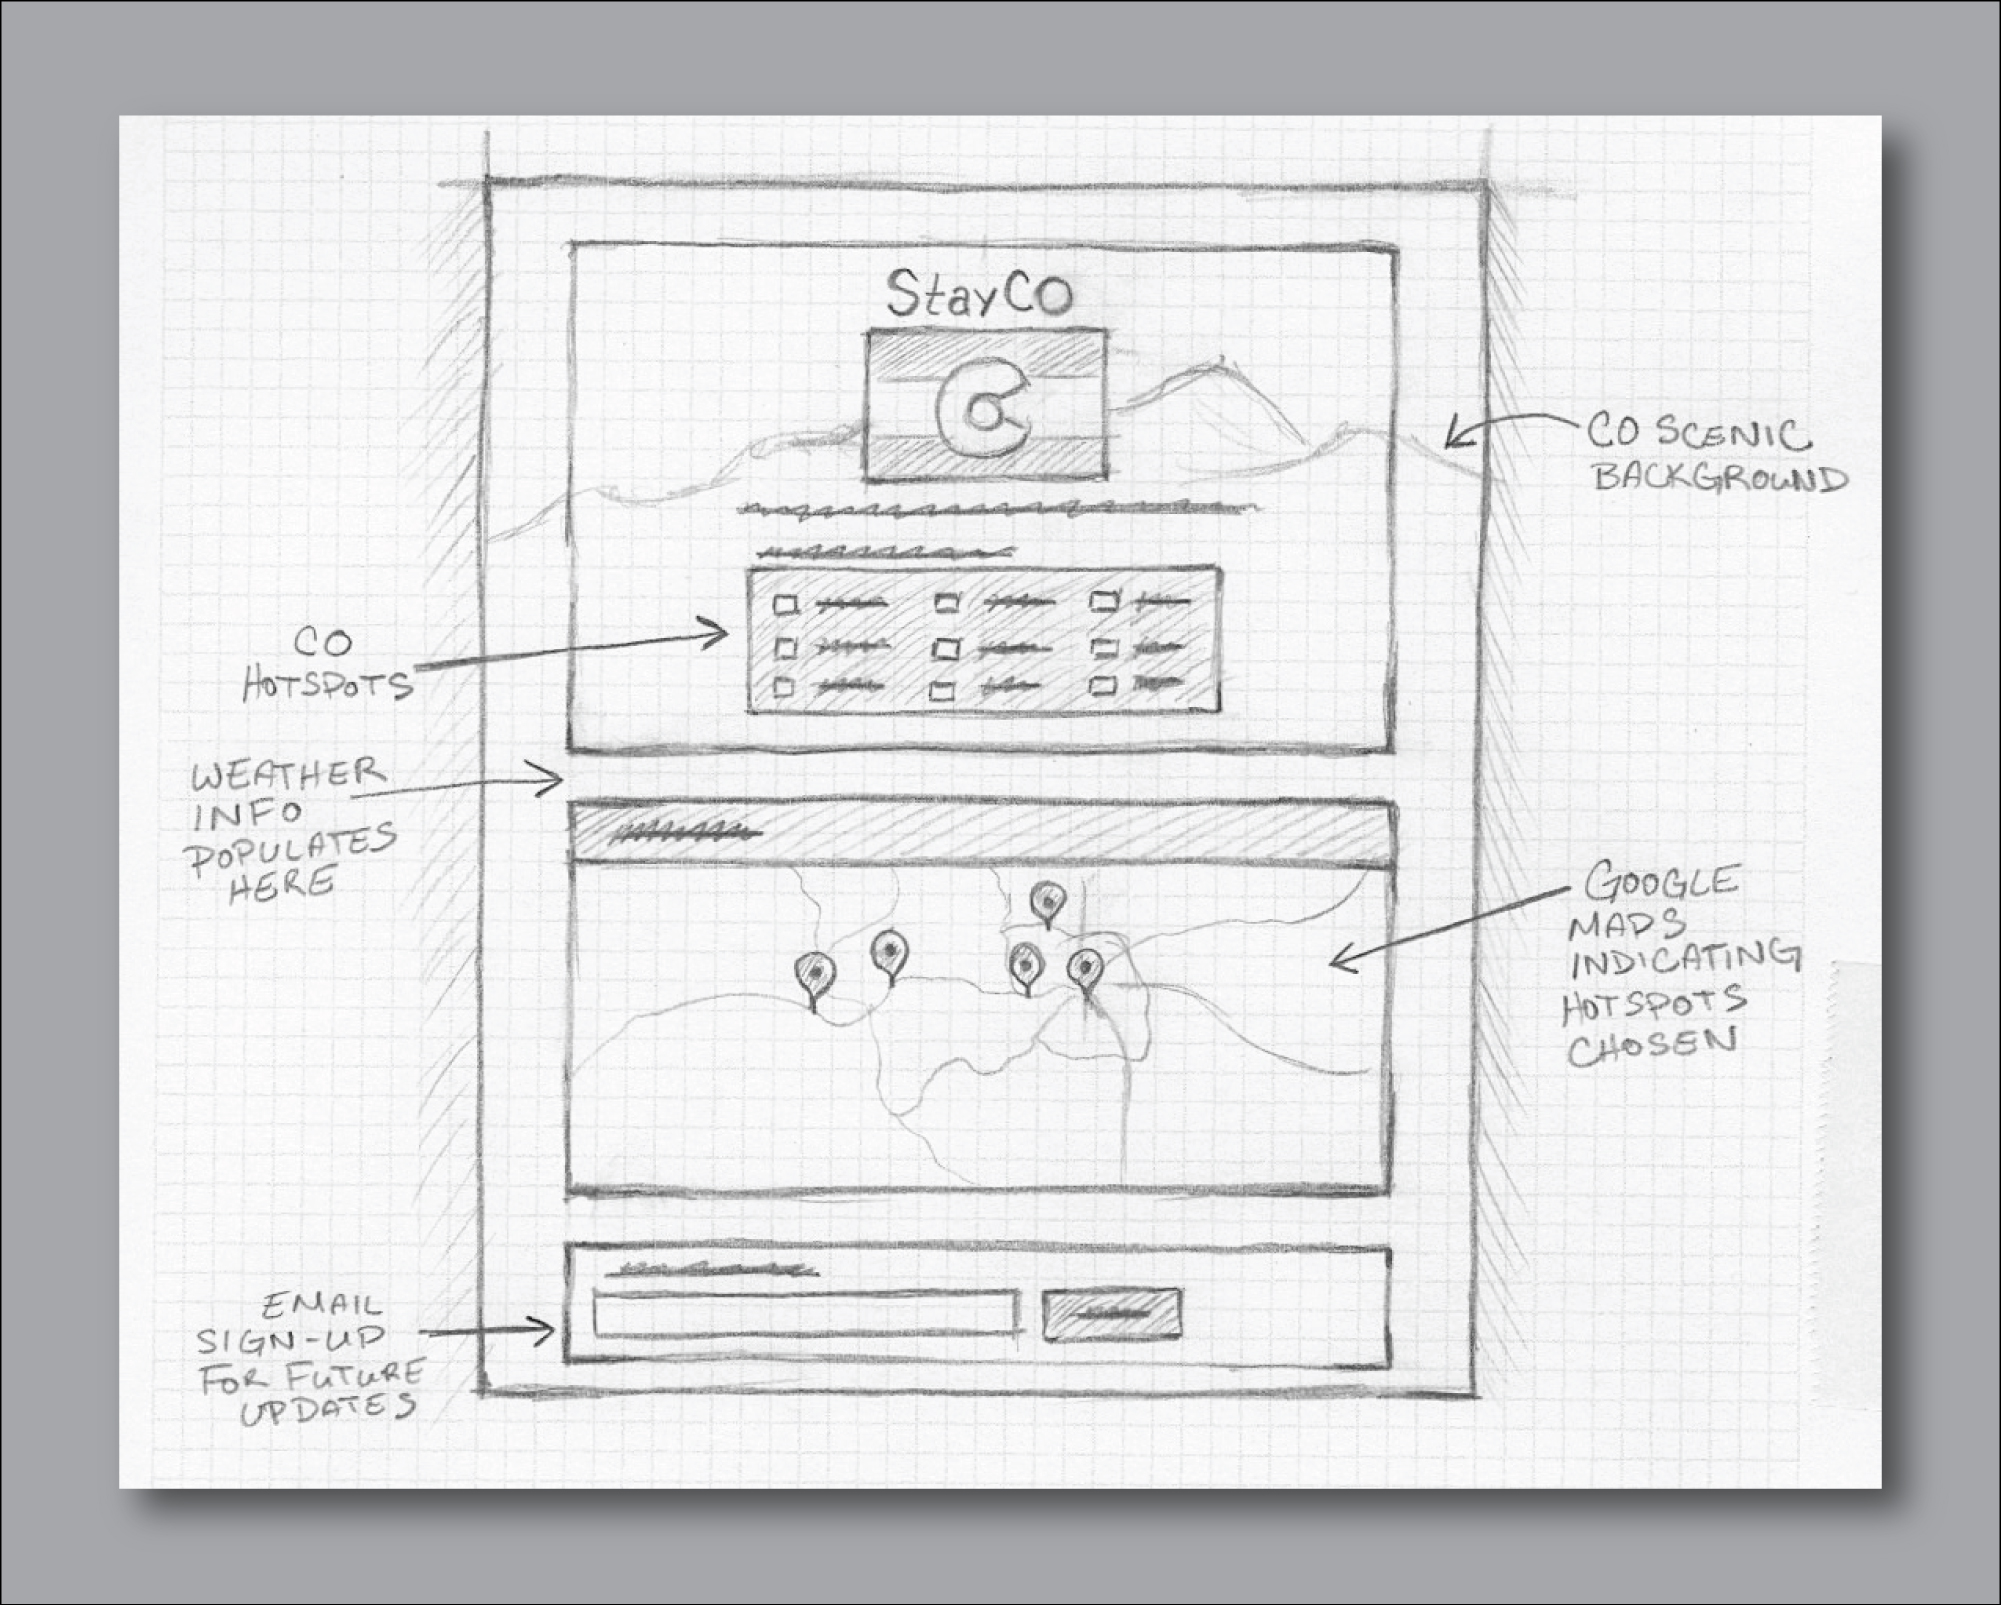 StayCO
C
CO SCENIC
BACKGROUND
CO
HOTSPOTS
WEATHER
INFO
POPULATES
HERE
GOOGLE
MAPS
INDICATING
HOTSPOTS
CHOSEN
EMAIL
SIGN-UP
FOR FUTURE
UPDATES